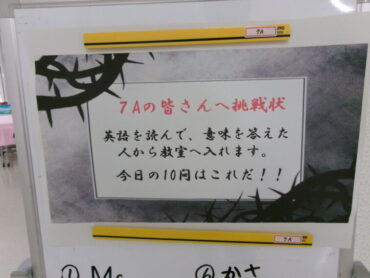 7A
7Aの皆さんへ挑戦状
英語を読んで、意味を答えた
人から教室へ入れます。
今日の10問はこれだ!!
7A
① Me
⑥ かさ